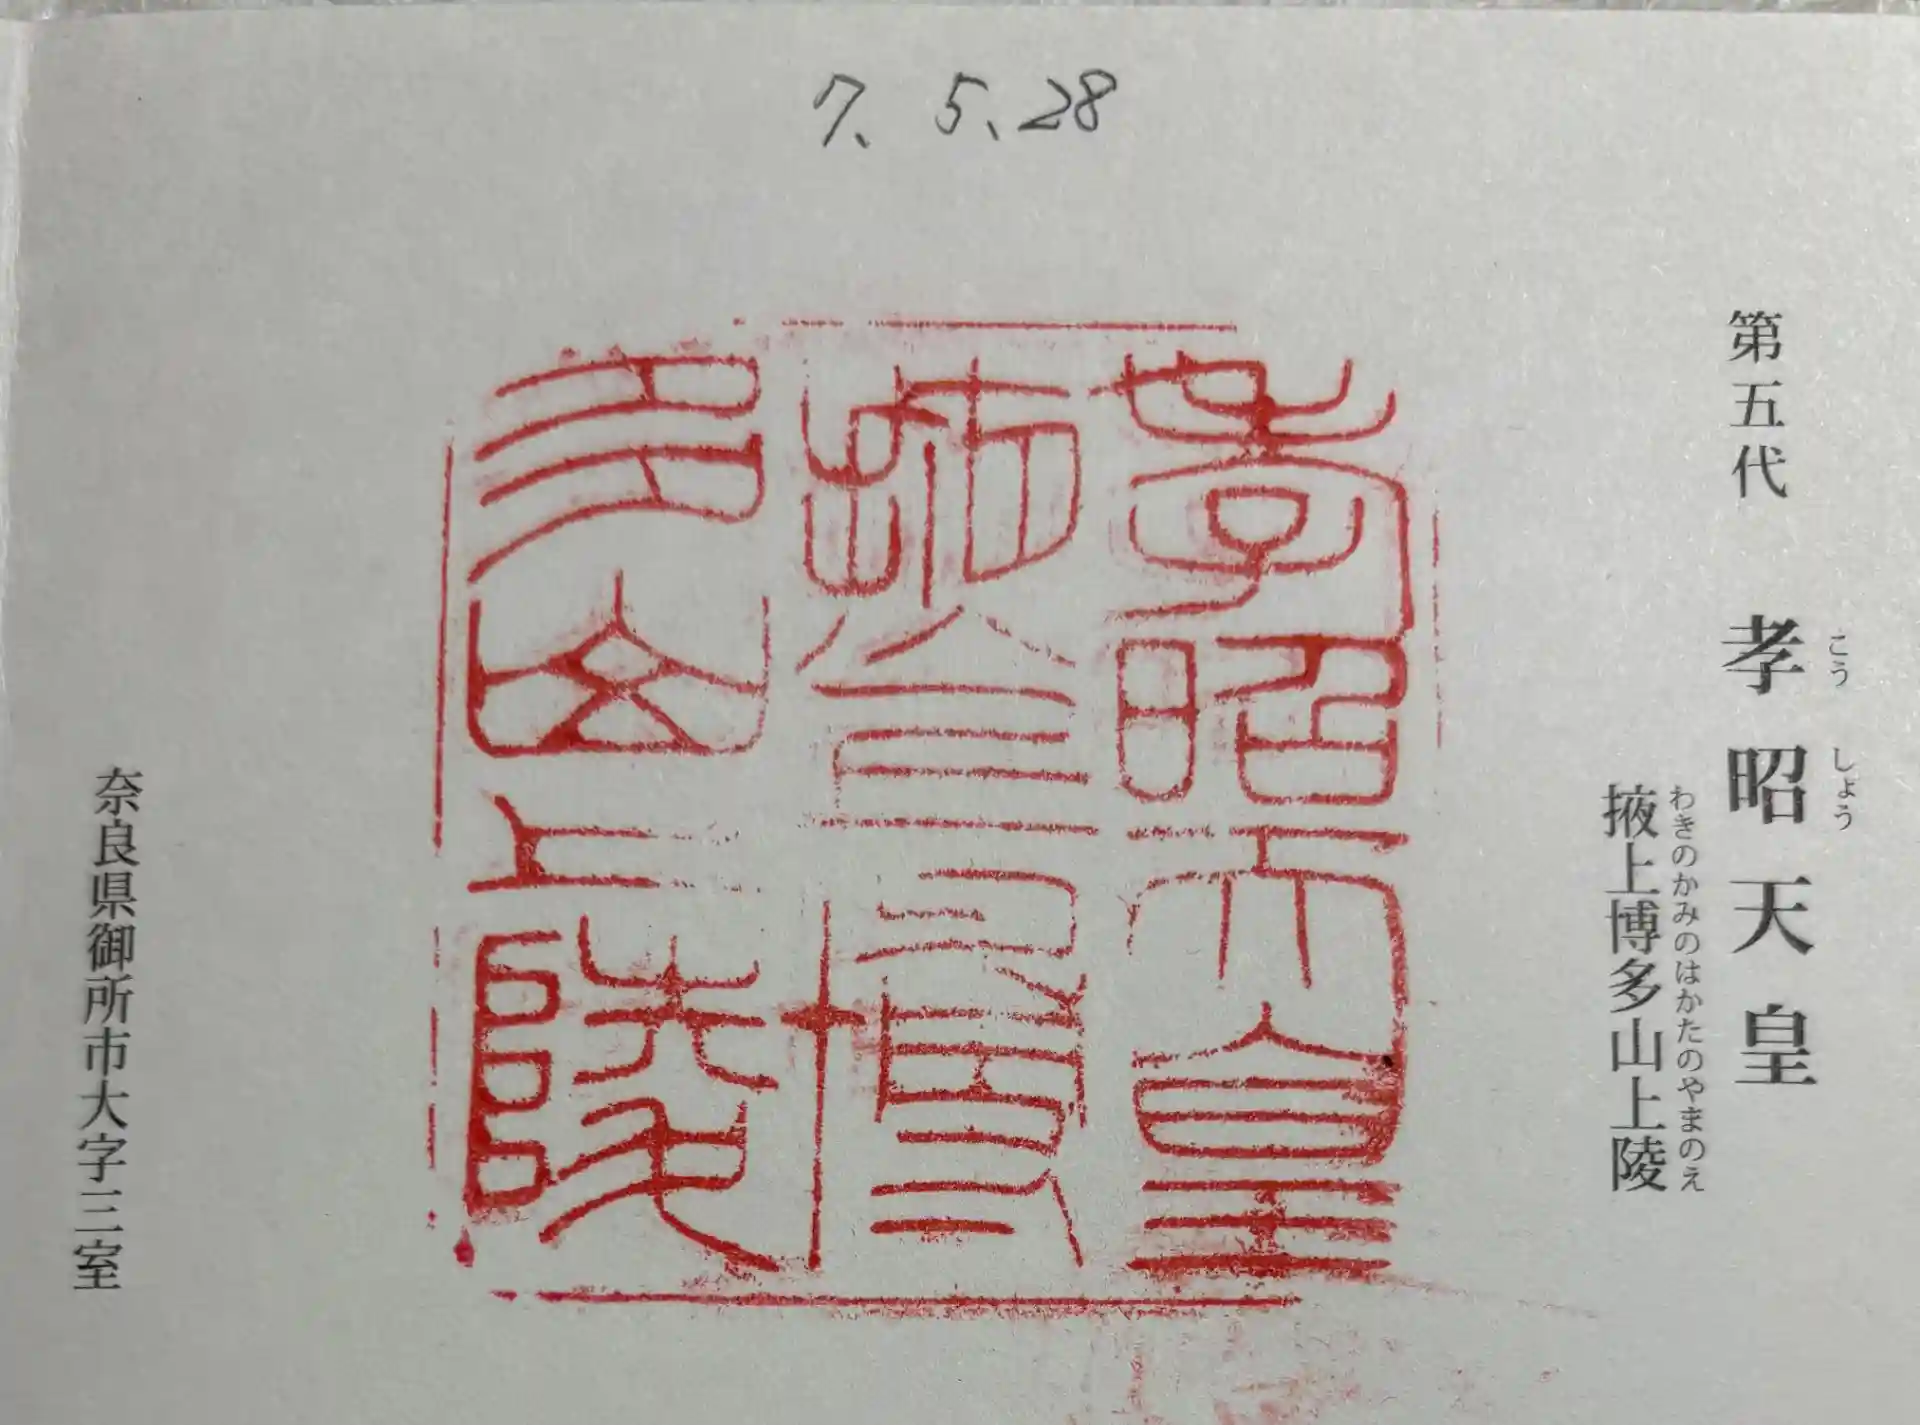 7.5.28
第五代 孝昭天皇
こうしょう
掖上博多山上陵
わきのかみのはかたのやまのえ
孝昭天皇
多山上陵
奈良県御所市大字三室